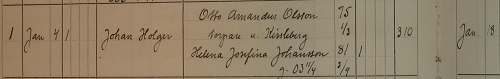 Otto Amandus Olsson 75
1 Jan 4 1 Johan Holger torpare u. Kinleberg 1/3 310 Jan 18
Helena Josefina Johansson 81 1
g. 03 4/4 2/9